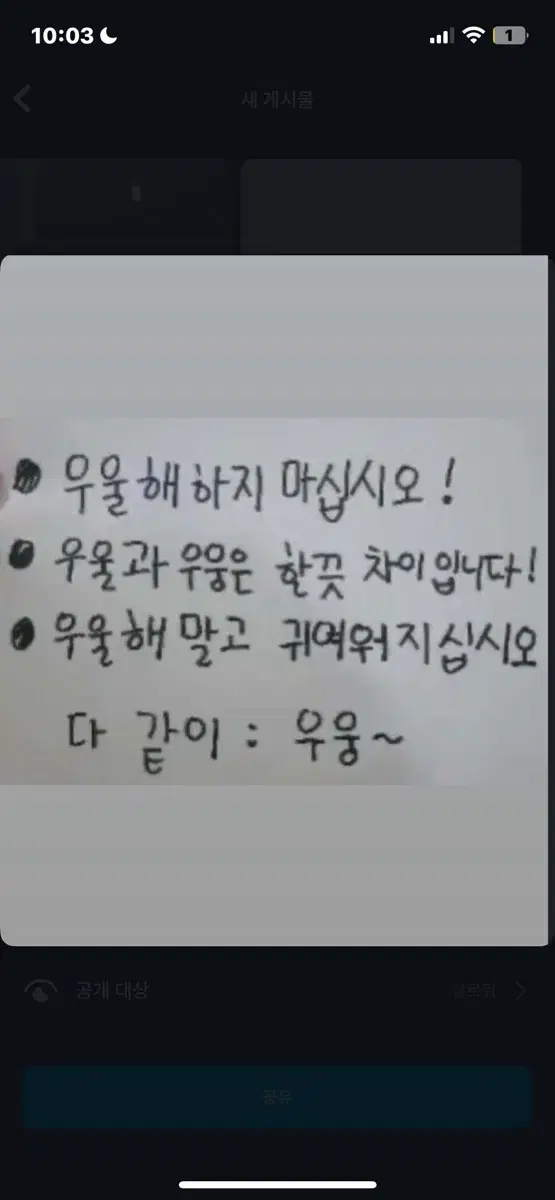 10:03
1
새 게시물
우울해하지 마십시오!
우울과 우웅은 한끗 차이입니다!
우울해 말고 귀여워지십시오
다 같이 : 우웅~
공개 대상
팔로워
공유